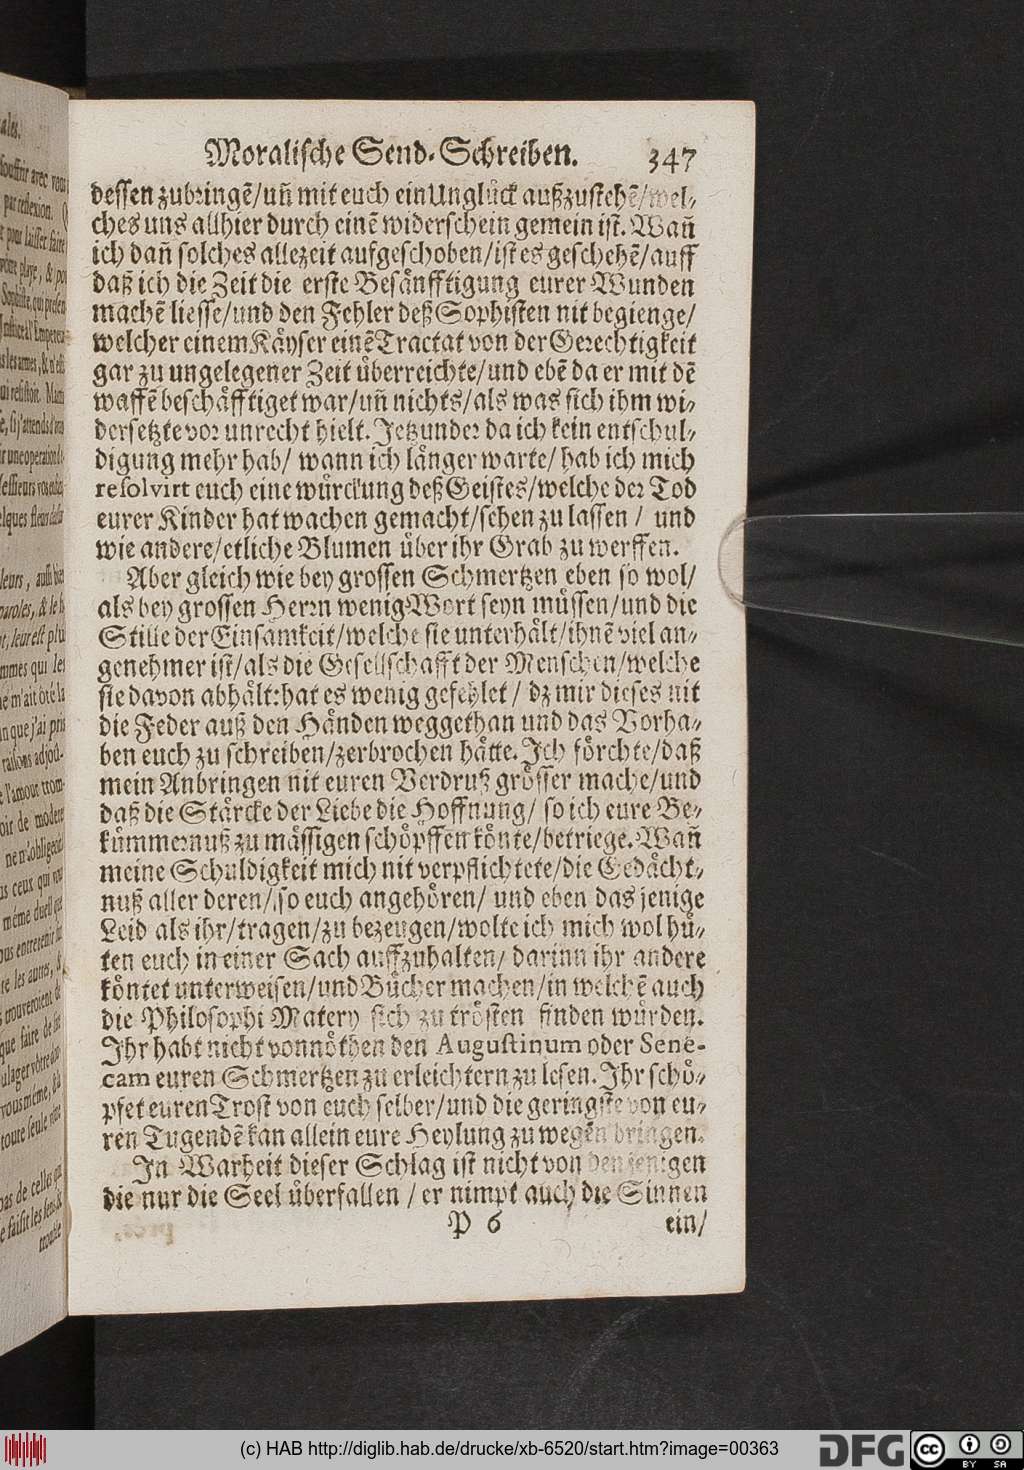 Moralische Send-Schreiben. 347
dessen zubringē/uñ mit euch ein Unglück außzustehē/wel-
ches uns allhier durch einē widerschein gemein ist. Wañ
ich dañ solches allezeit aufgeschoben/ist es geschehē/auff
daß ich die Zeit die erste Besänfftigung eurer Wunden
machē liesse/und den Fehler deß Sophisten nit begienge/
welcher einem Käyser einē Tractat von der Gerechtigkeit
gar zu ungelegener Zeit überreichte/und ebē da er mit dē
waffē beschäfftiget war/uñ nichts/als was sich ihm wi-
dersetzte vor unrecht hielt. Jetzunder da ich kein entschul-
digung mehr hab/ wann ich länger warte/ hab ich mich
resolvirt euch eine würckung deß Geistes/welche der Tod
eurer Kinder hat wachen gemacht/sehen zu lassen / und
wie andere/etliche Blumen über ihr Grab zu werffen.
Aber gleich wie bey grossen Schmertzen eben so wol/
als bey grossen Herrn wenig Wort seyn müssen/und die
Stille der Einsamkeit/welche sie unterhält/ihnē viel an-
genehmer ist/als die Gesellschafft der Menschen/welche
sie davon abhält: hat es wenig gefehlet / dz mir dieses nit
die Feder auß den Händen weggethan und das Vorha-
ben euch zu schreiben/zerbrochen hätte. Ich förchte/daß
mein Anbringen nit euren Verdruß grösser mache/und
daß die Stärcke der Liebe die Hoffnung/ so ich eure Be-
kümmernuß zu mässigen schöpffen könte/betriege. Wañ
meine Schuldigkeit mich nit verpflichtete/die Gedächt-
nuß aller deren/so euch angehören/ und eben das jenige
Leid als ihr/tragen/zu bezeugen/wolte ich mich wol hü-
ten euch in einer Sach auffzuhalten/ darinn ihr andere
köntet unterweisen/und Bücher machen/in welchē auch
die Philosophi Matery sich zu trösten finden würden.
Ihr habt nicht vonnöthen den Augustinum oder Sene-
cam euren Schmertzen zu erleichtern zu lesen. Ihr schö-
pfet euren Trost von euch selber/und die geringste von eu-
ren Tugendē kan allein eure Heylung zu wegen bringen.
In Warheit dieser Schlag ist nicht von den jenigen
die nur die Seel überfallen / er nimpt auch die Sinnen
P 6 ein/
(c) HAB http://diglib.hab.de/drucke/xb-6520/start.htm?image=00363
DFG
cc BY SA